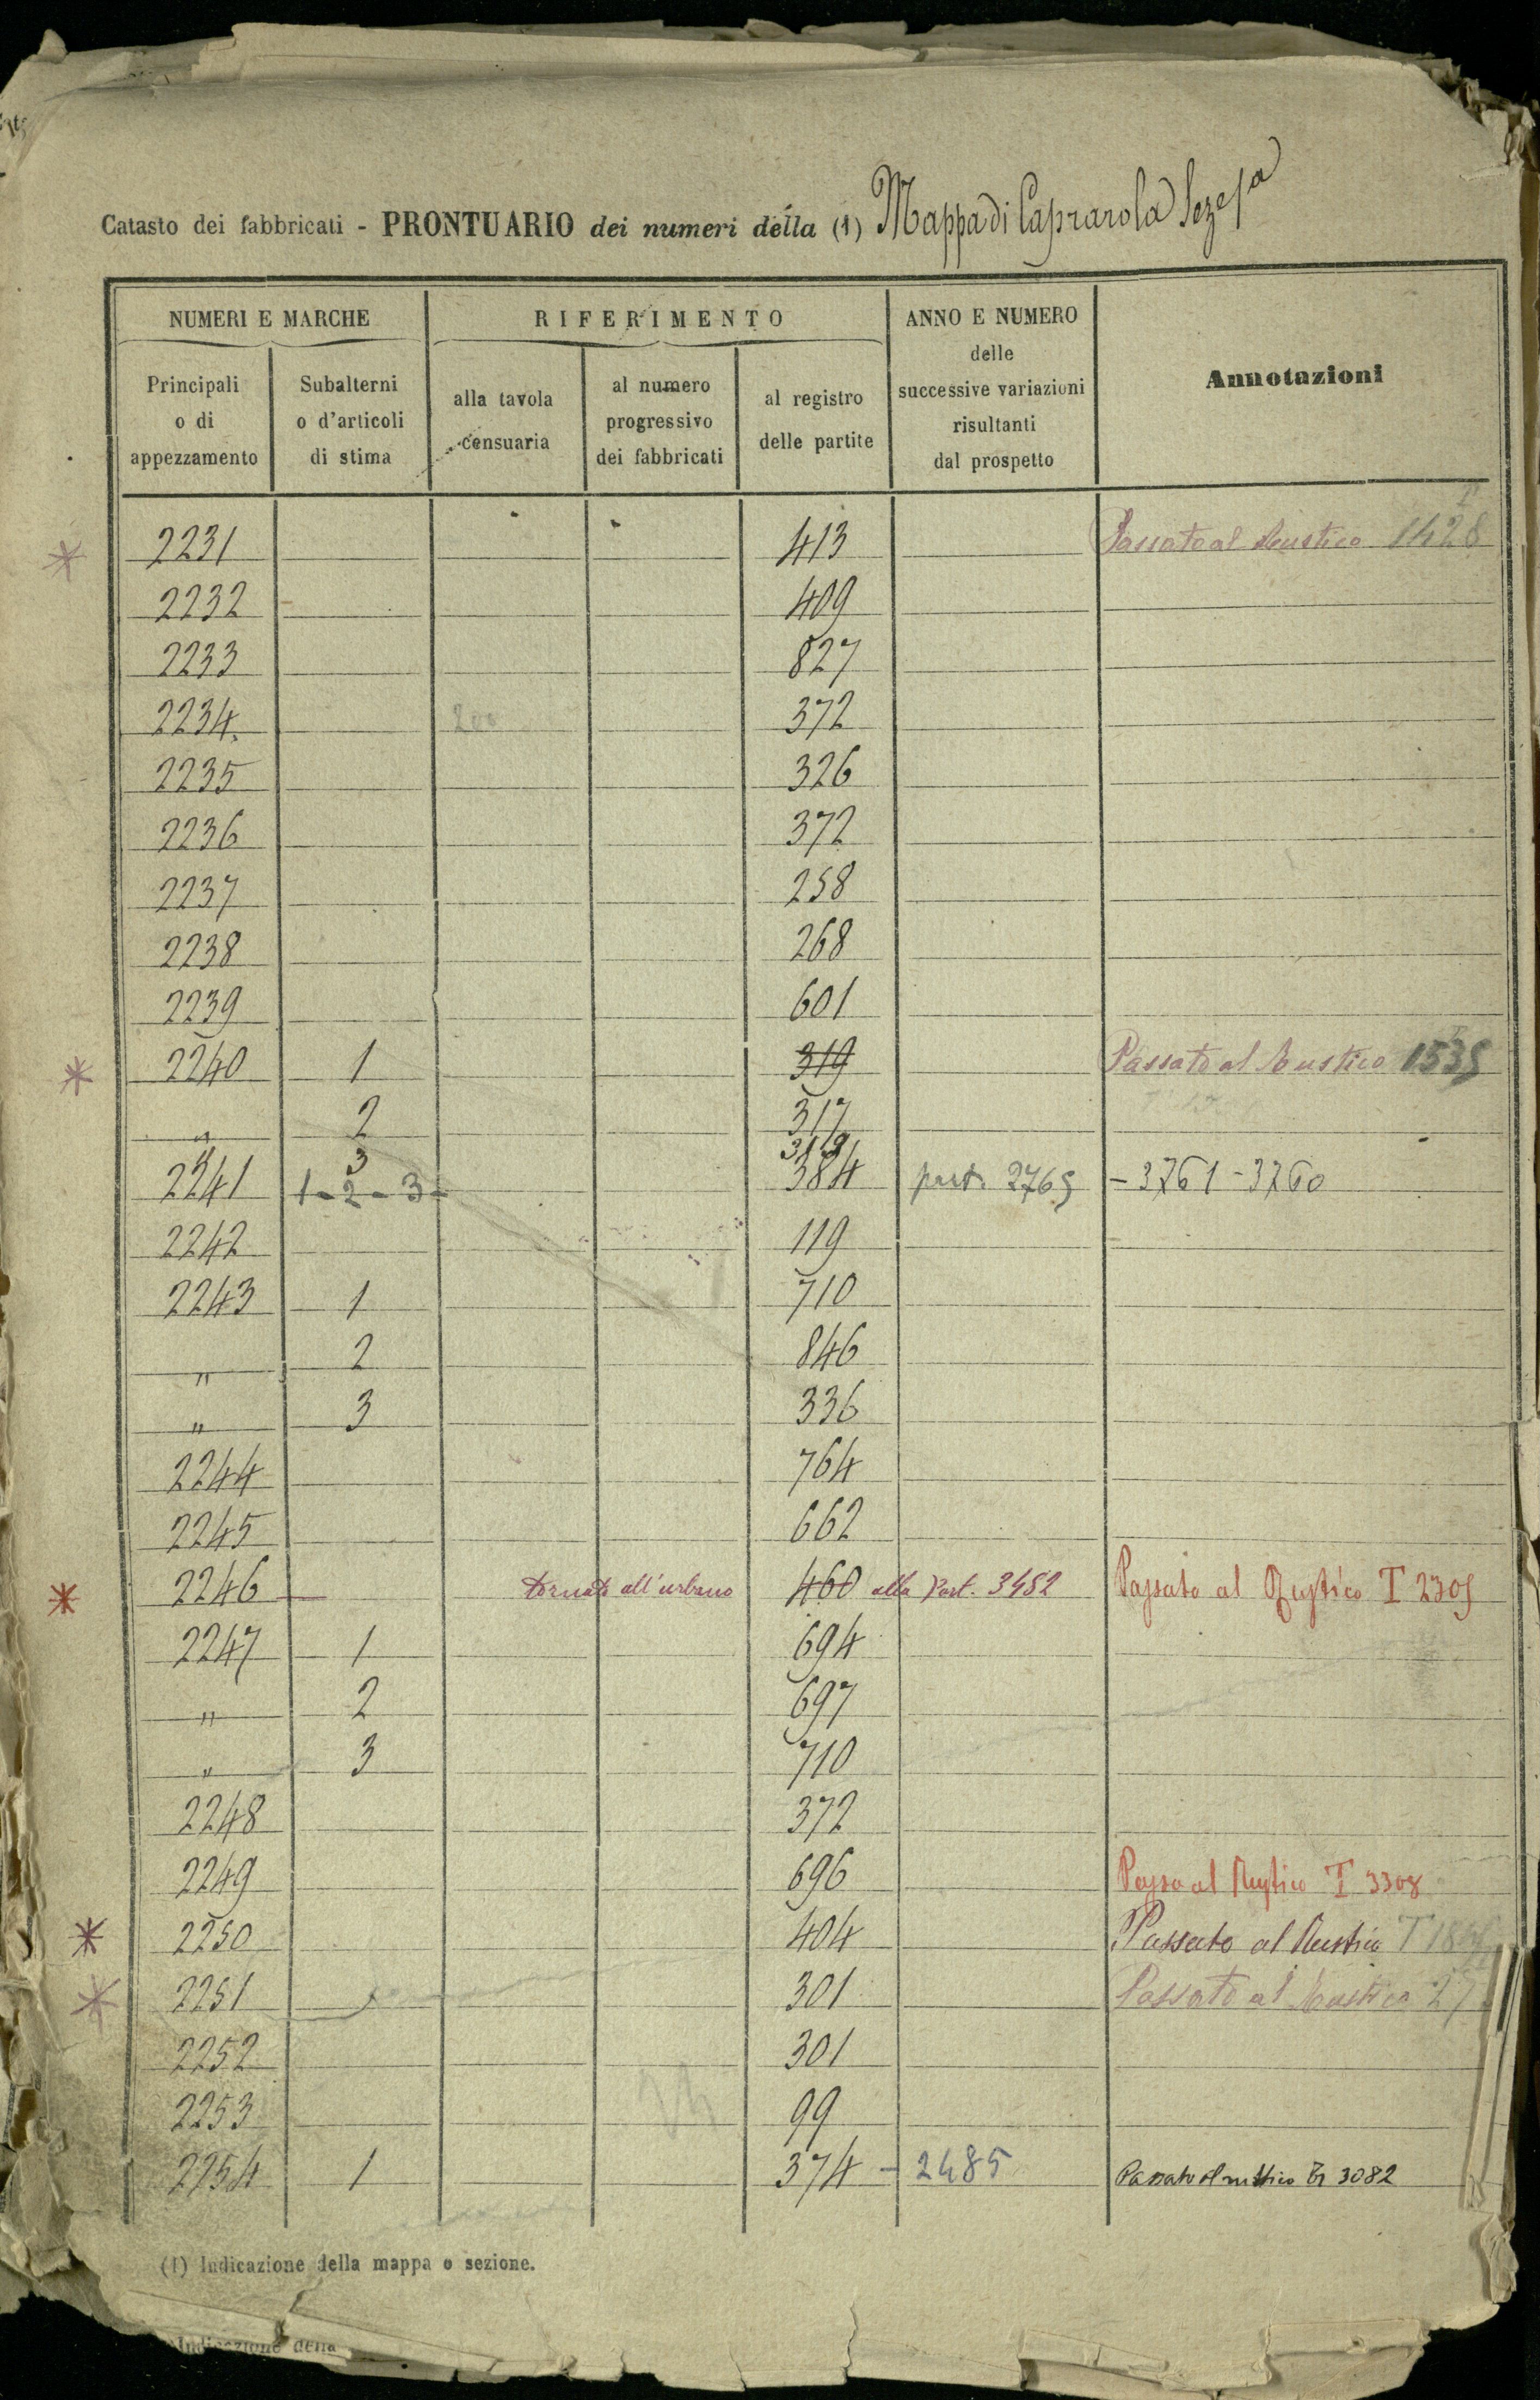 Catasto dei fabbricati - PRONTUARIO dei numeri della (1) Mappa di Caprarola Seze 1a
NUMERI E MARCHE
RIFERIMENTO
ANNO E NUMERO
delle
successive variazioni
risultanti
dal prospetto
Annotazioni
Principali
o di
appezzamento
Subalterni
o d'articoli
di stima
alla tavola
censuaria
al numero
progressivo
dei fabbricati
al registro
delle partite
* 2231 413 Passato al Rustico 1428
2232 409
2233 827
2234. 200 372
2235 326
2236 372
2237 258
2238 268
2239 601
* 2240 1 319 Passato al Rustico 1535
" 2 317
" 3 319
2241 1-2-3- 384 part. 2765 - 3761 - 3760
2242 119
2243 1 710
" 2 846
" 3 336
2244 764
2245 662
* 2246 — tornato all'urbano 460 alla Part. 3452 Passato al Rustico T 2305
2247 1 694
" 2 697
" 3 710
2248 372
2249 696 Passa al Rustico T 3308
* 2250 404 Passato al Rustico T
* 2251 301 Passato al Rustico
2252 301
2253 99
2254 1 374 - 2485 Passato al rustico Tr 3082
(1) Indicazione della mappa o sezione.
Indicazione della